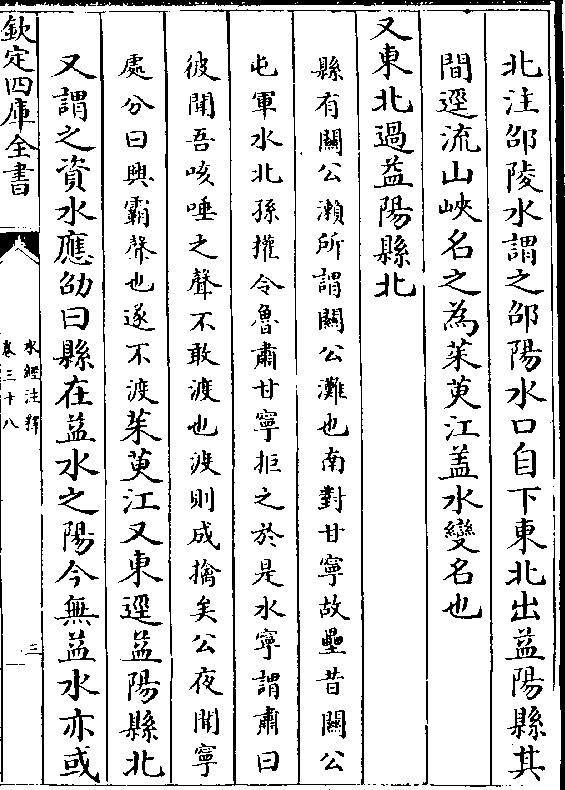 北注邵陵水謂之邵陽水口自下東北出益陽縣其
間逕流山峽名之為茱萸江盖水變名也
又東北過益陽縣北
縣有關公瀨所謂關公灘也南對甘寧故壘昔關公
屯軍水北孫權令魯肅甘寧拒之於是水寧謂肅曰
彼聞吾咳唾之聲不敢渡也渡則成擒矣公夜聞寧
處分曰興霸聲也遂不渡茱萸江又東逕益陽縣北
又謂之資水應劭曰縣在益水之陽今無益水亦或
欽定四庫全書
水經注釋
卷三十八
三